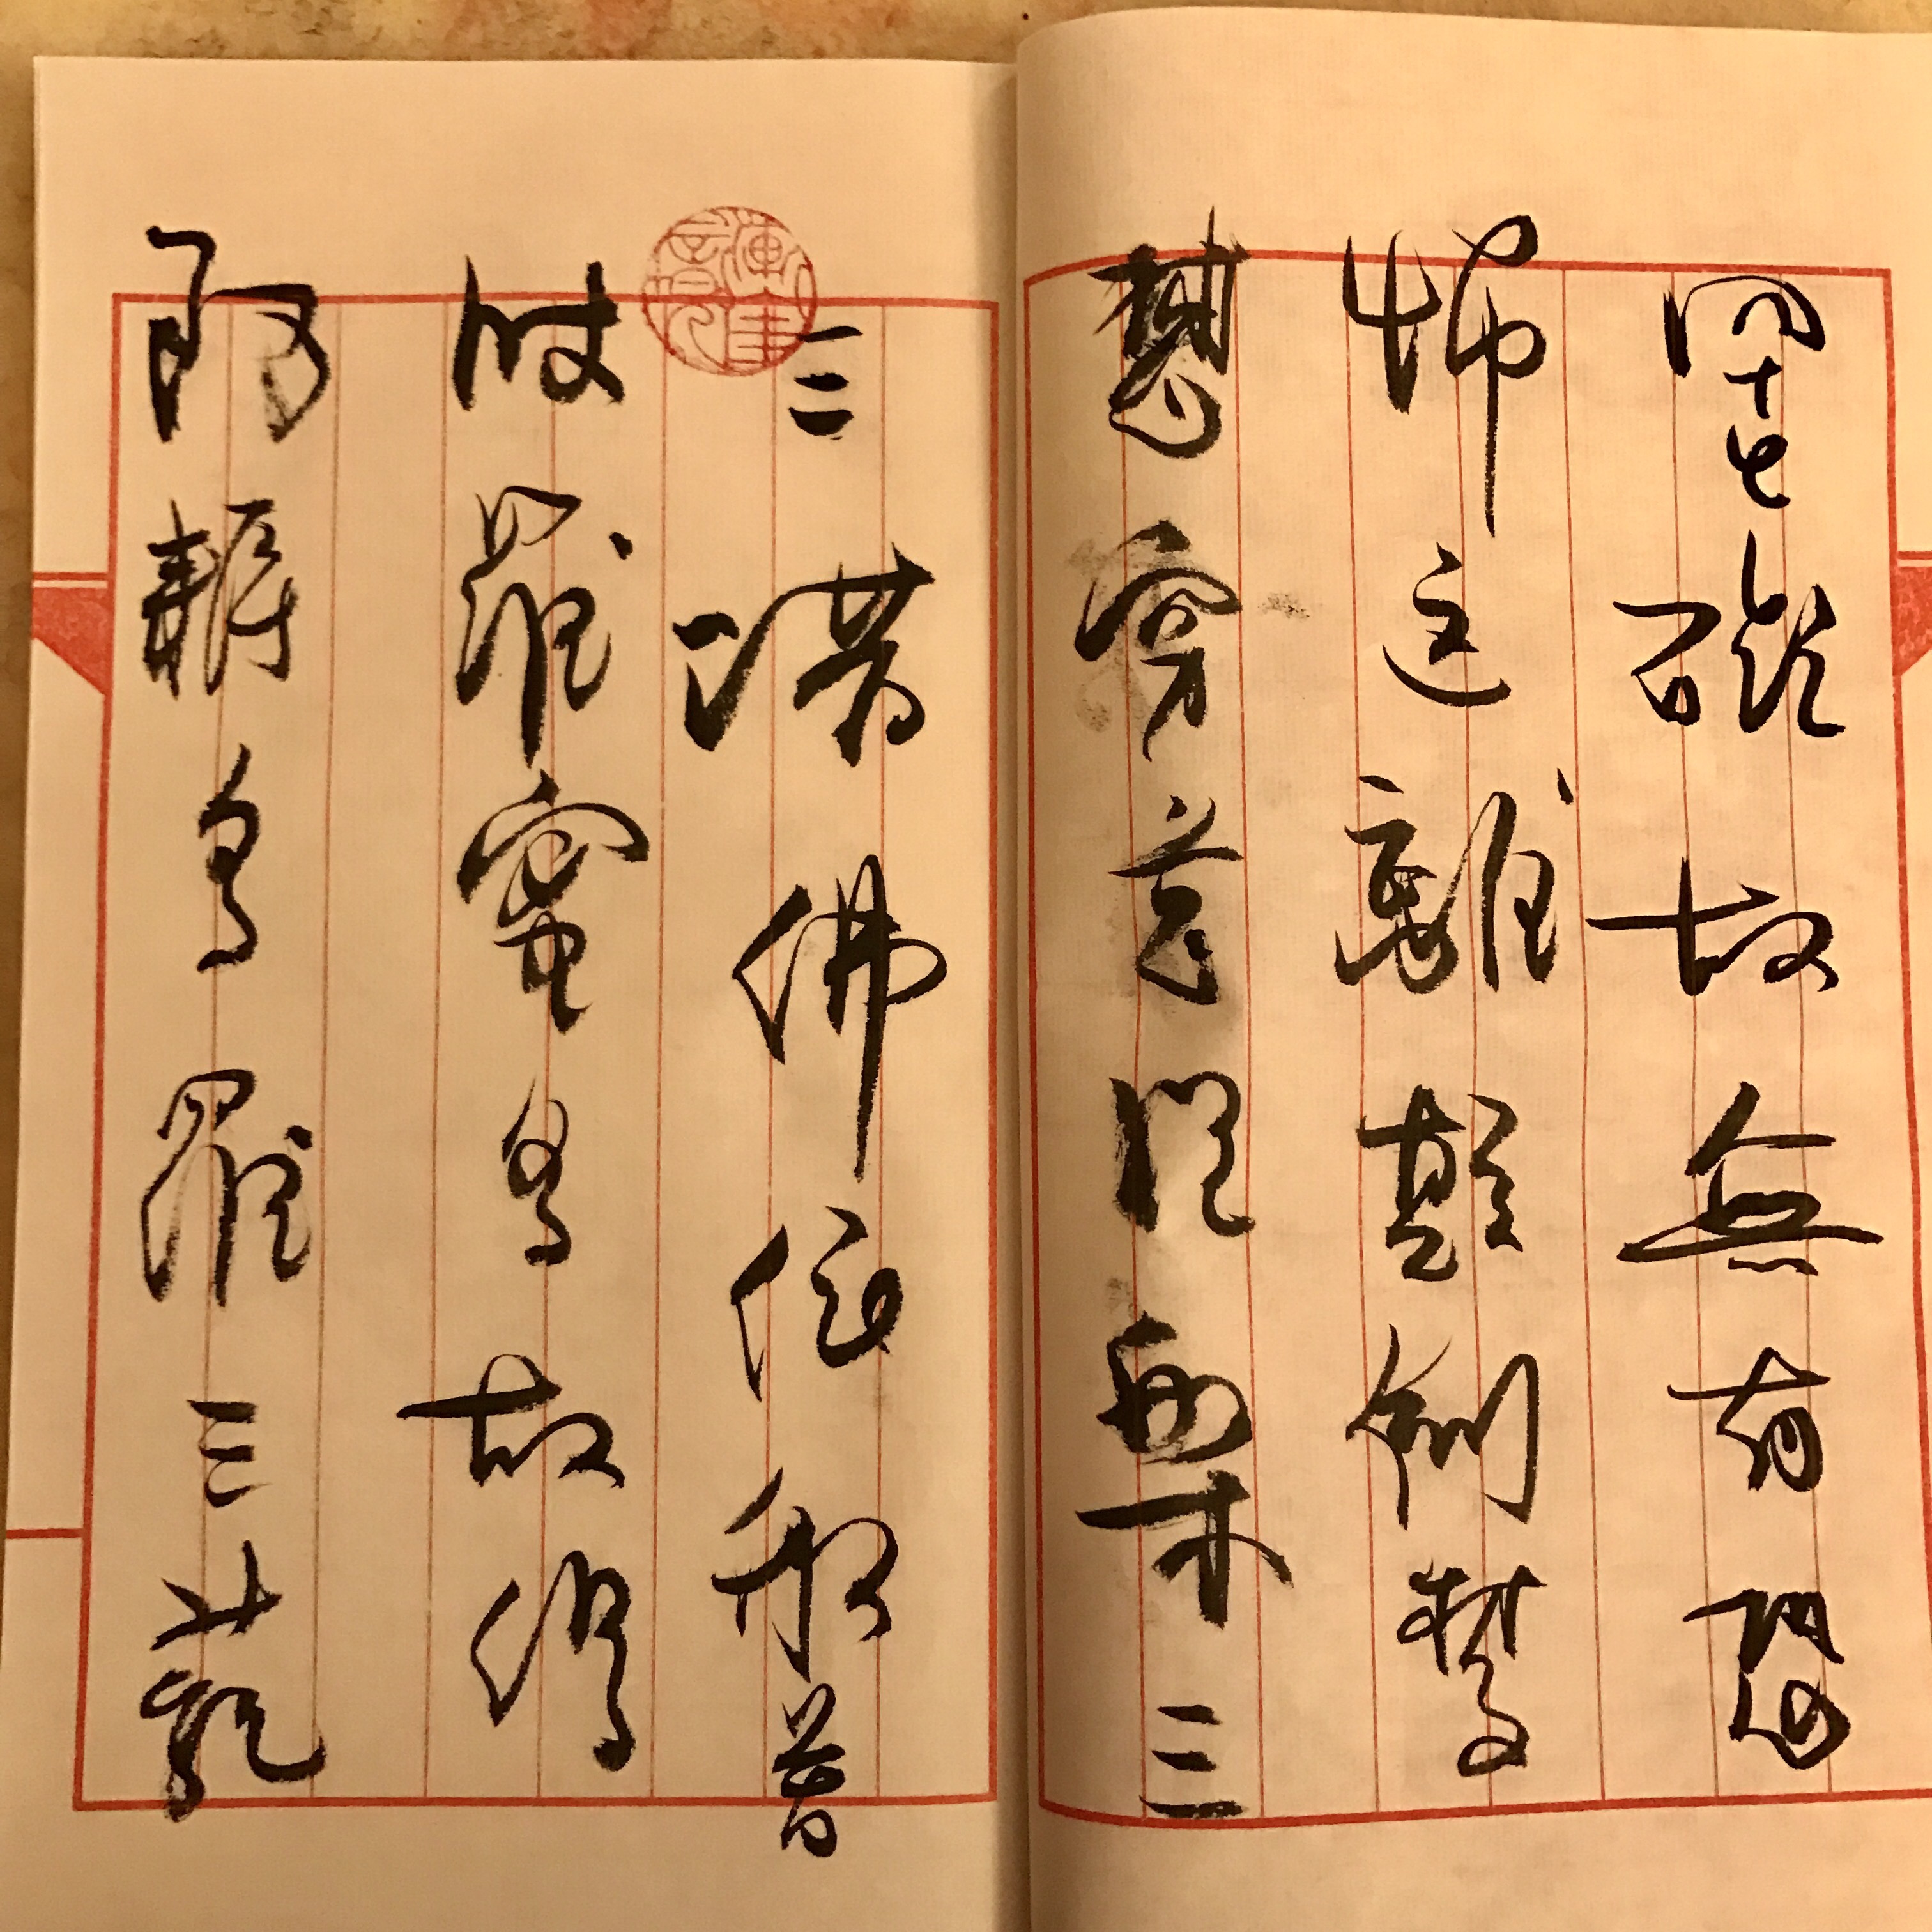 罣礙故無有恐
怖遠離顛倒夢
想究竟涅槃三
三諸佛依般若
波羅蜜多故得
阿耨多羅三藐